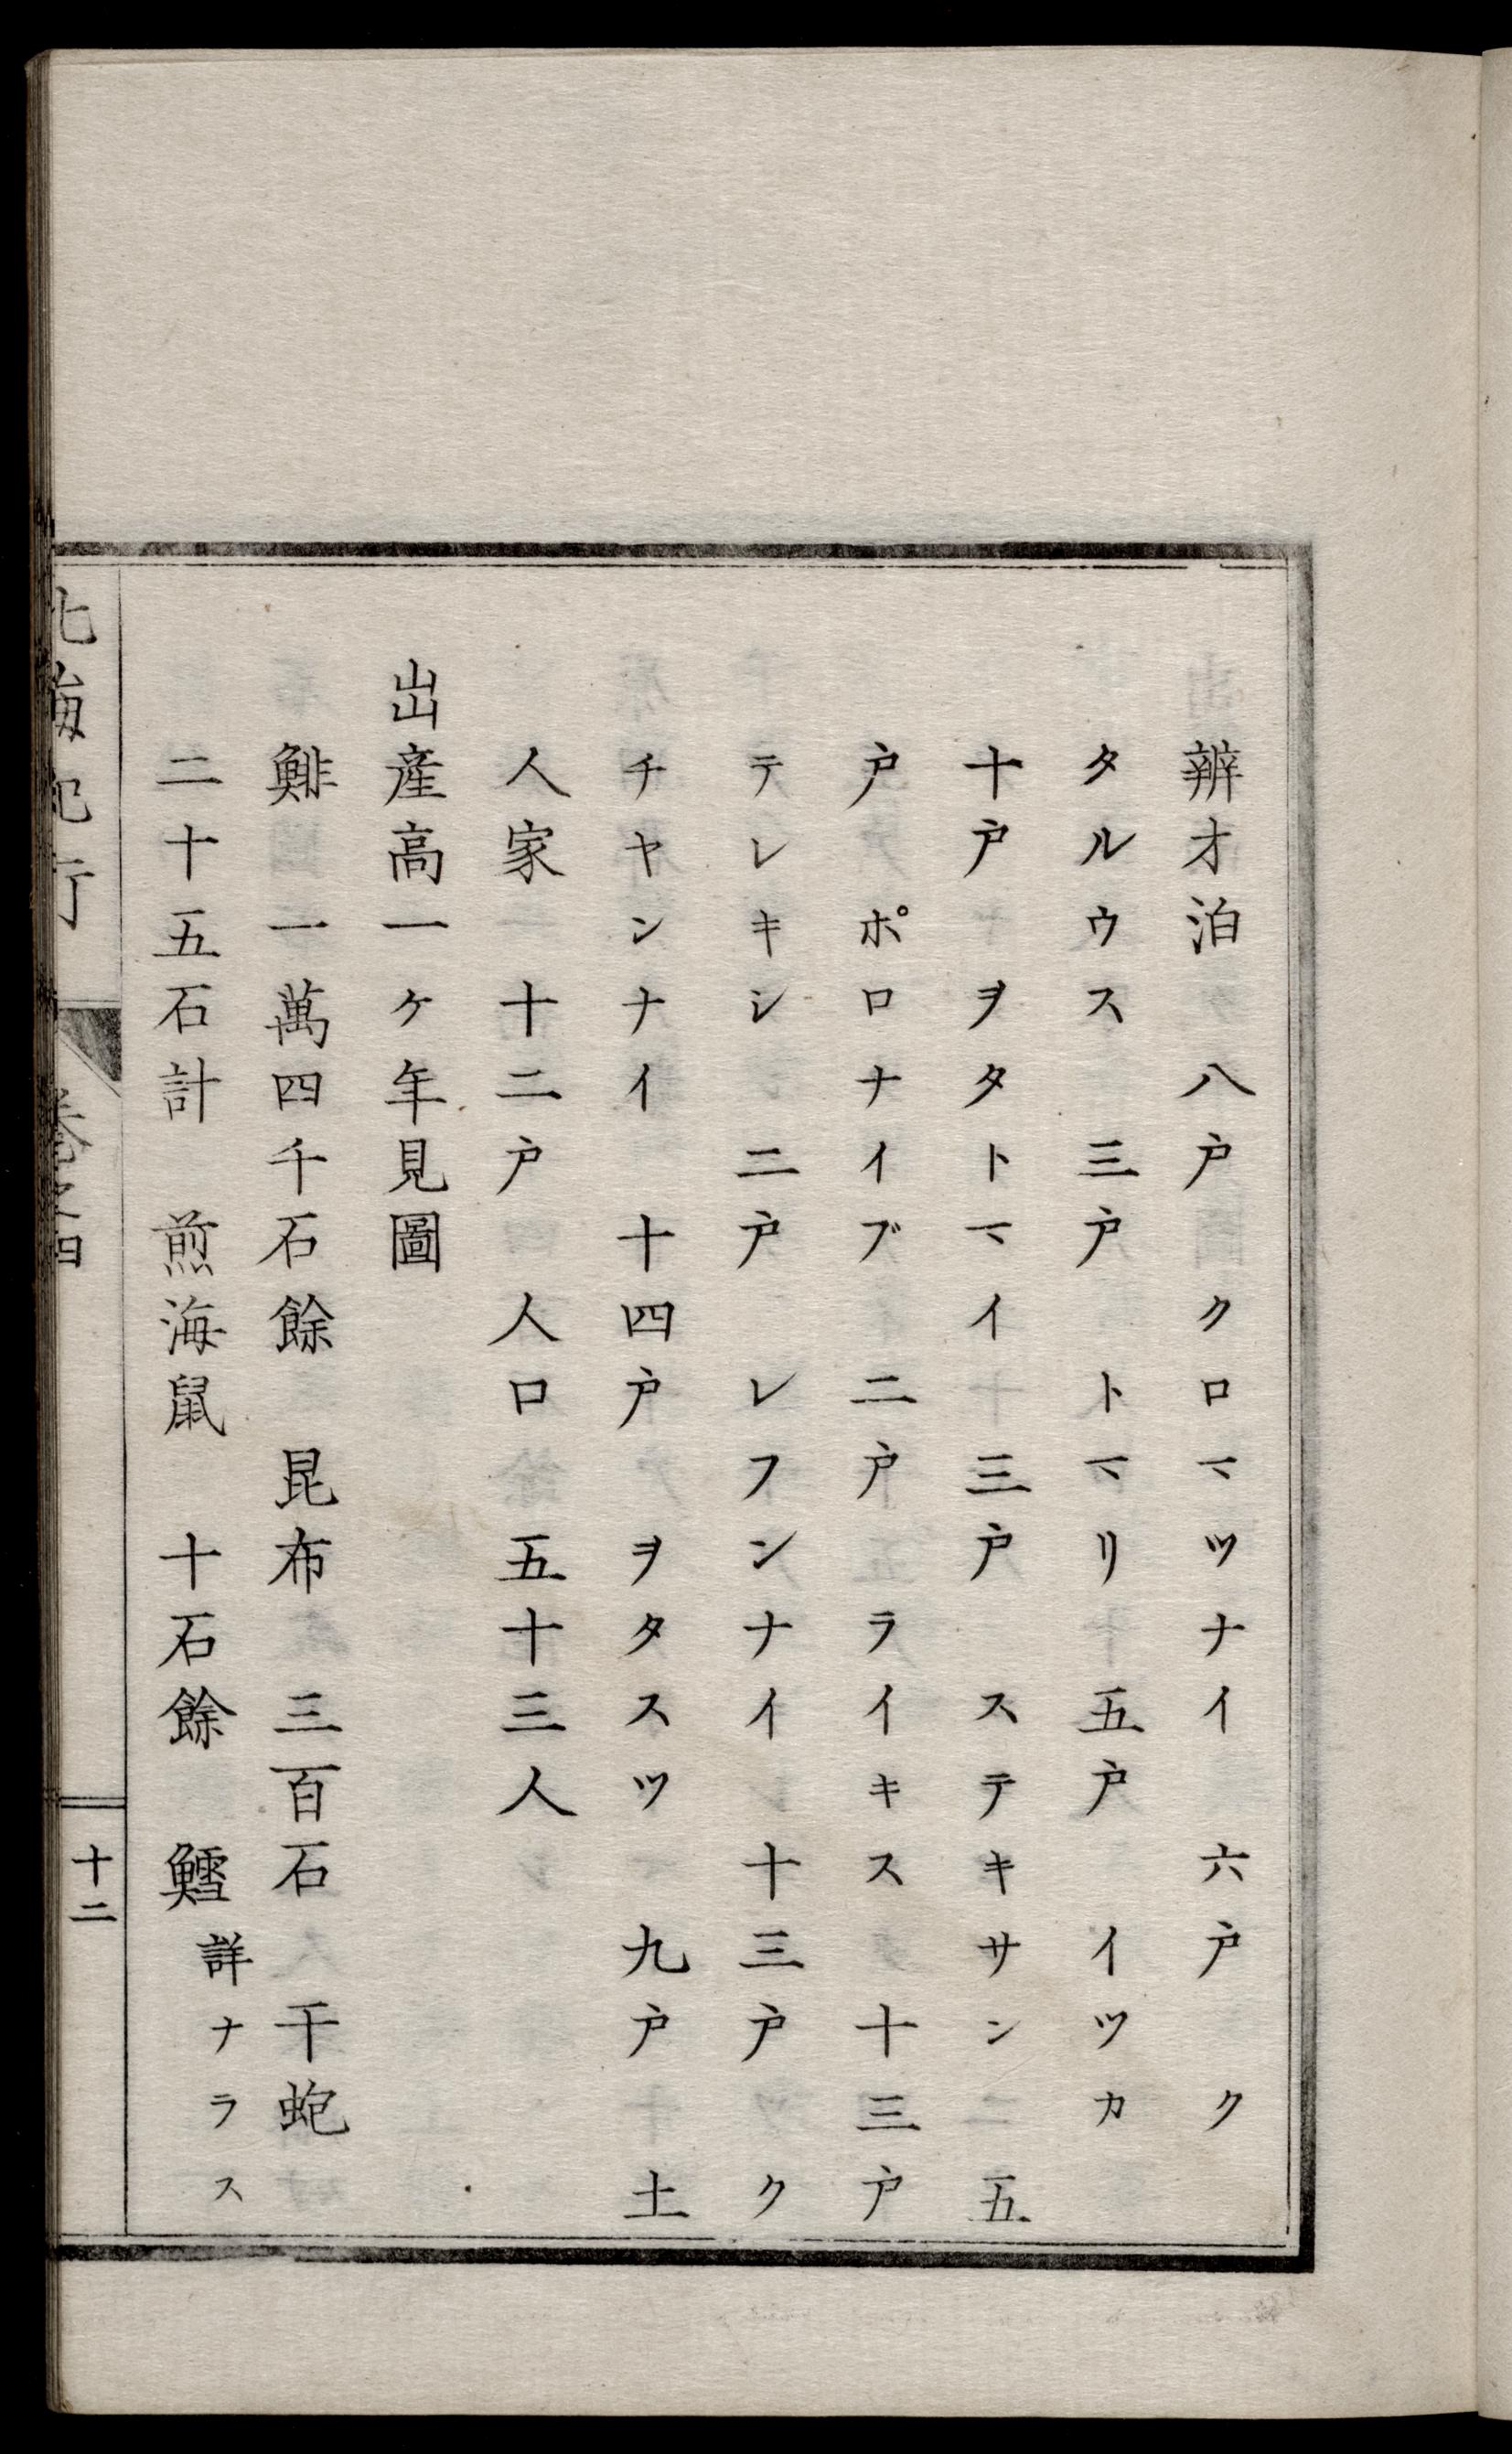 辨才泊　八戸　クロマツナイ　六戸　ク
タルウス　三戸　トマリ　五戸　イツカ
十戸　ヲタトマイ　三戸　ステキサン　五
戸　ポロナイブ　二戸　ライキス　十三戸
テレキシ　二戸　レフンナイ　十三戸　ク
チヤンナイ　十四戸　ヲタスツ　九戸　土
人家　十二戸　人口　五十三人
出産高一ケ年見圖
鯡　一萬四千石餘　昆布　三百石　干蚫
二十五石計　煎海鼠　十石餘　鱈詳ナラス
北海紀行　卷之四　十二